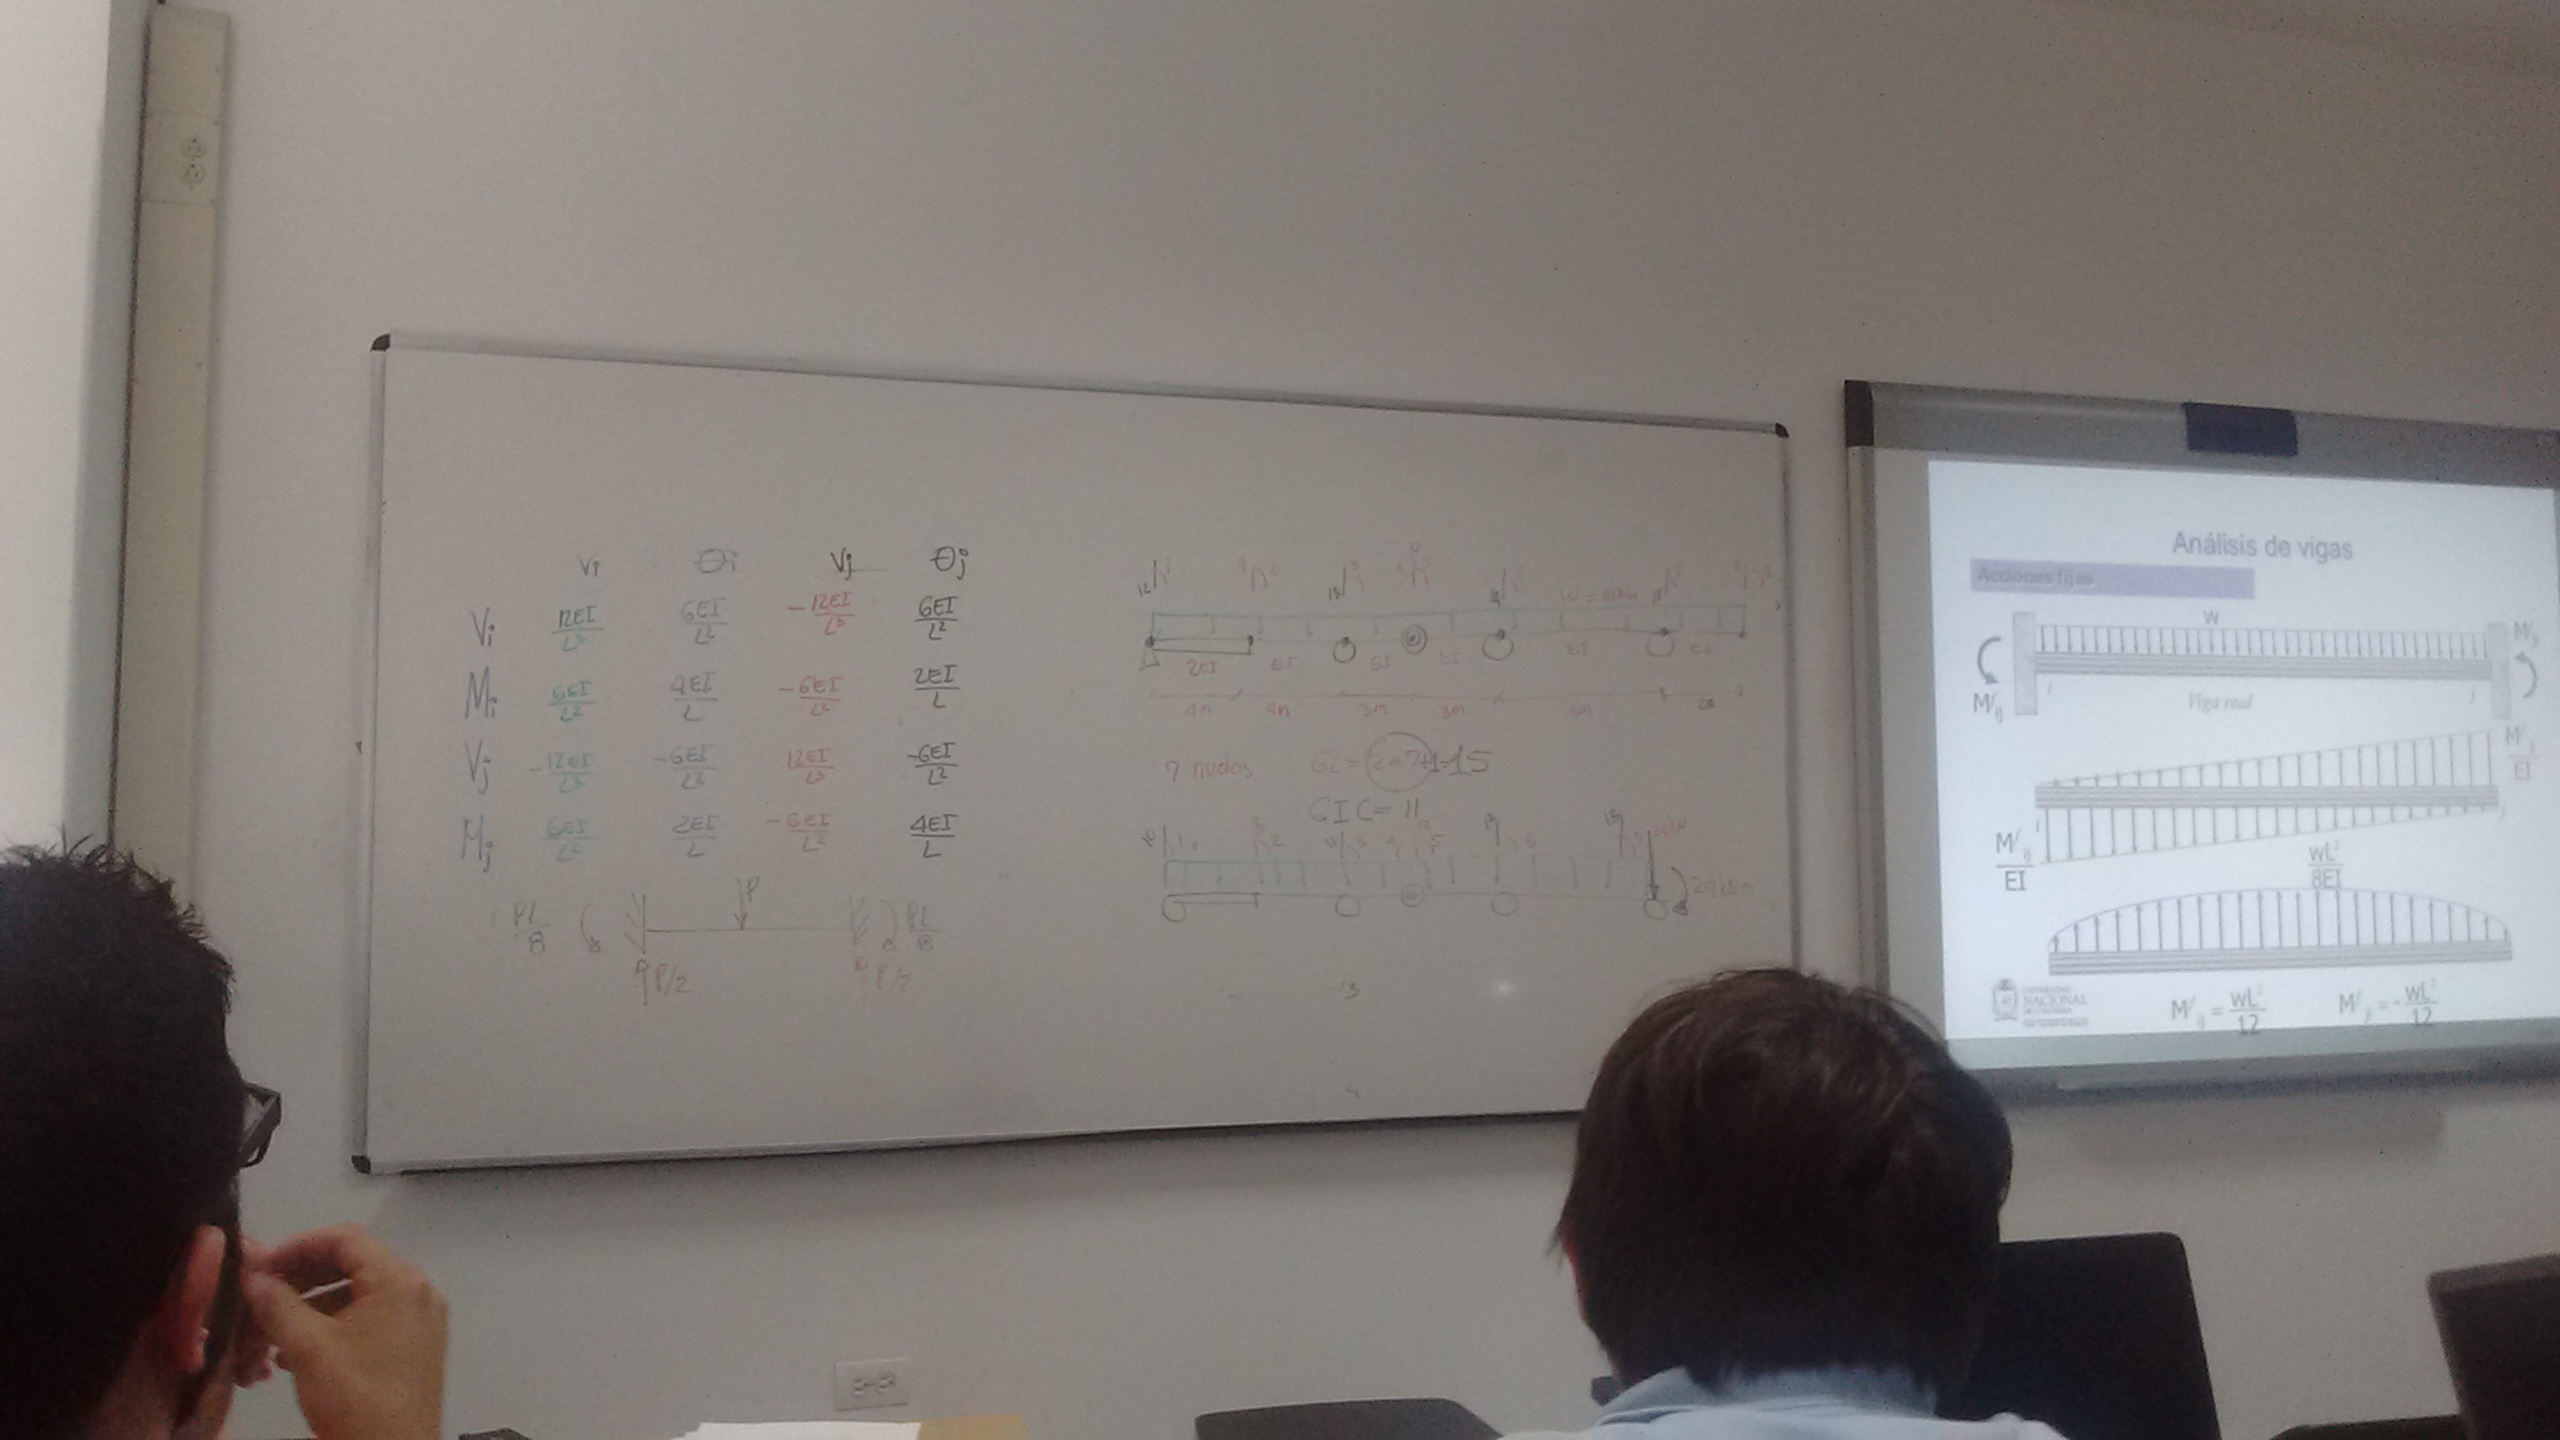 Vi θi Vj θj
Vi 12EI/L³ 6EI/L² -12EI/L³ 6EI/L²
Mi 6EI/L² 4EI/L -6EI/L² 2EI/L
Vj -12EI/L³ -6EI/L² 12EI/L³ -6EI/L²
Mj 6EI/L² 2EI/L -6EI/L² 4EI/L
P
PL/8 PL/8
P/2 P/2
12 1 13 14
2EI EI EI EI EI EI
4m 4m 3m 3m 6m 2m
7 nudos GL = 2*7+1=15
GIC = 11
Análisis de vigas
Acciones fijas
W
Mᶠij Mᶠji
i j
Viga real
Mᶠji/EI
i j
Mᶠij/EI
WL²/8EI
UNIVERSIDAD
NACIONAL
DE COLOMBIA
Mᶠij = WL²/12 Mᶠji = -WL²/12